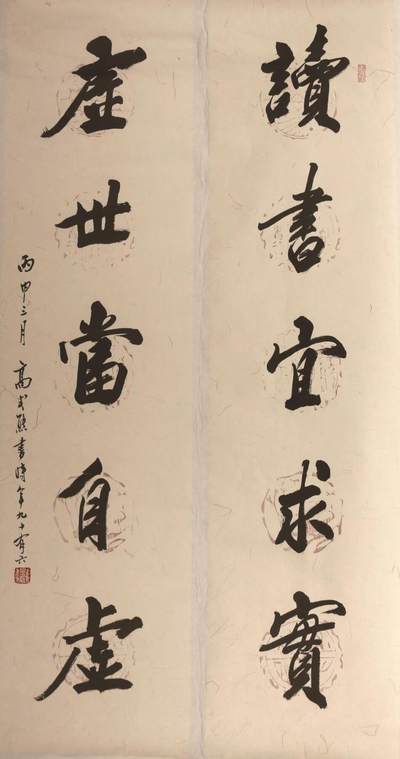 讀書宜求實
虛世當自虛
丙申三月 高式熊書時年九十有六